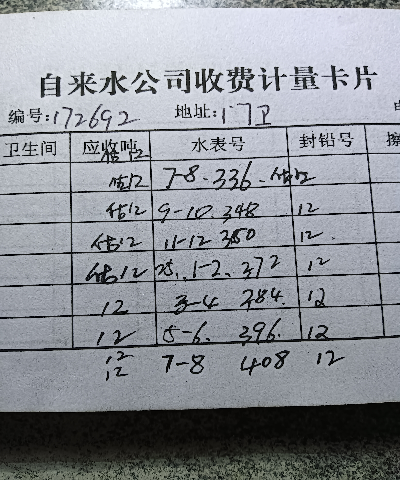 自来水公司收费计量卡片
编号:172692 地址:1门卫
卫生间 应收吨 水表号 封铅号
估12
估12 7-8. 336. 估12
估12 9-10. 348 12
估12 11-12 360 12.
估12 25.. 1-2. 372 12
12 3-4 384. 12
12 5-6. 396. 12
12
12 7-8 408 12